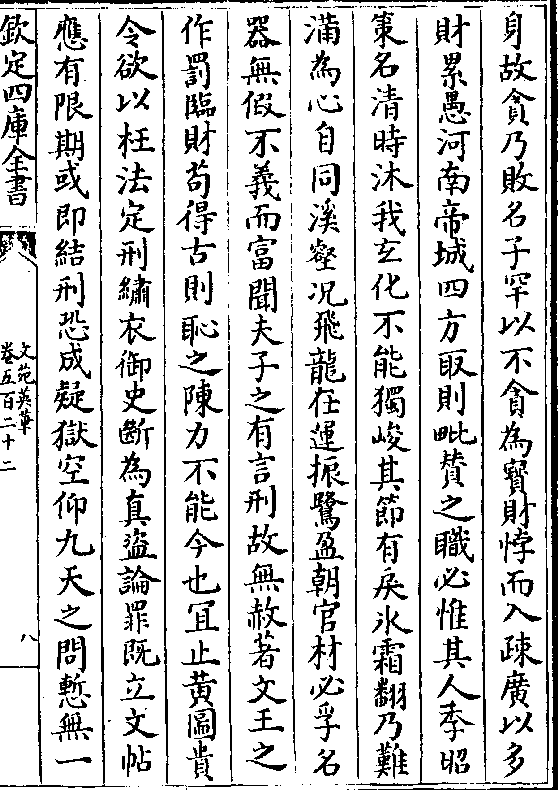 身故貪乃敗名子罕以不貪為寳財悖而入疎廣以多
財累愚河南帝城四方取則毗賛之職必惟其人季昭
䇿名清時沐我玄化不能獨峻其節有戾氷霜翻乃難
滿為心自同溪壑况飛龍在運振鷺盈朝官材必孚名
器無假不義而富聞夫子之有言刑故無赦著文王之
作罰臨財茍得古則恥之陳力不能今也宜止黄圖貴
令欲以枉法定刑繡衣御史斷為真盗論罪既立文帖
應有限期或即結刑恐成疑獄空仰九天之問慙無一
欽定四庫全書
文苑英華
卷五百二十二
八